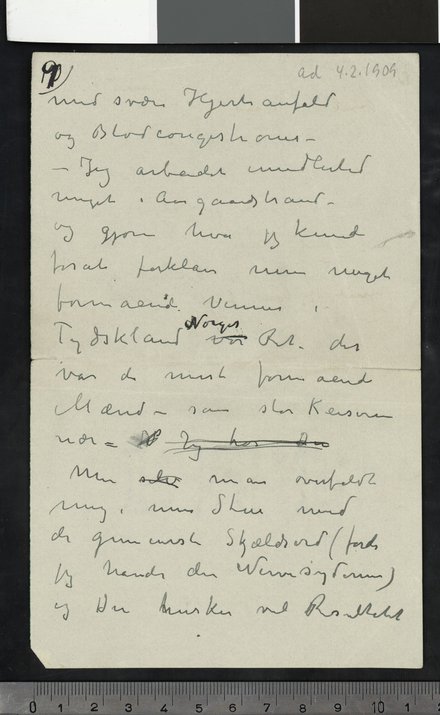 9)
ad 4.2.1909
med svære Hjerteanfald
og Blodcongestioner –
– Jeg arbeidet imidlertid
meget i Aasgaardstrand –
og gjorde hva jeg kunde
forat forklare mine meget
formaaende Venner i
Tydskland Norges vor Ret – der
var de mest formaaende
Mænd – som stor Keiseren
nær = Jeg har den
Men selv man overfaldt
meg i mine Stue med
de gemeneste Skjældsord (fordi
jeg havde den Nervesygdomme)
og Du husker vel Resultatet